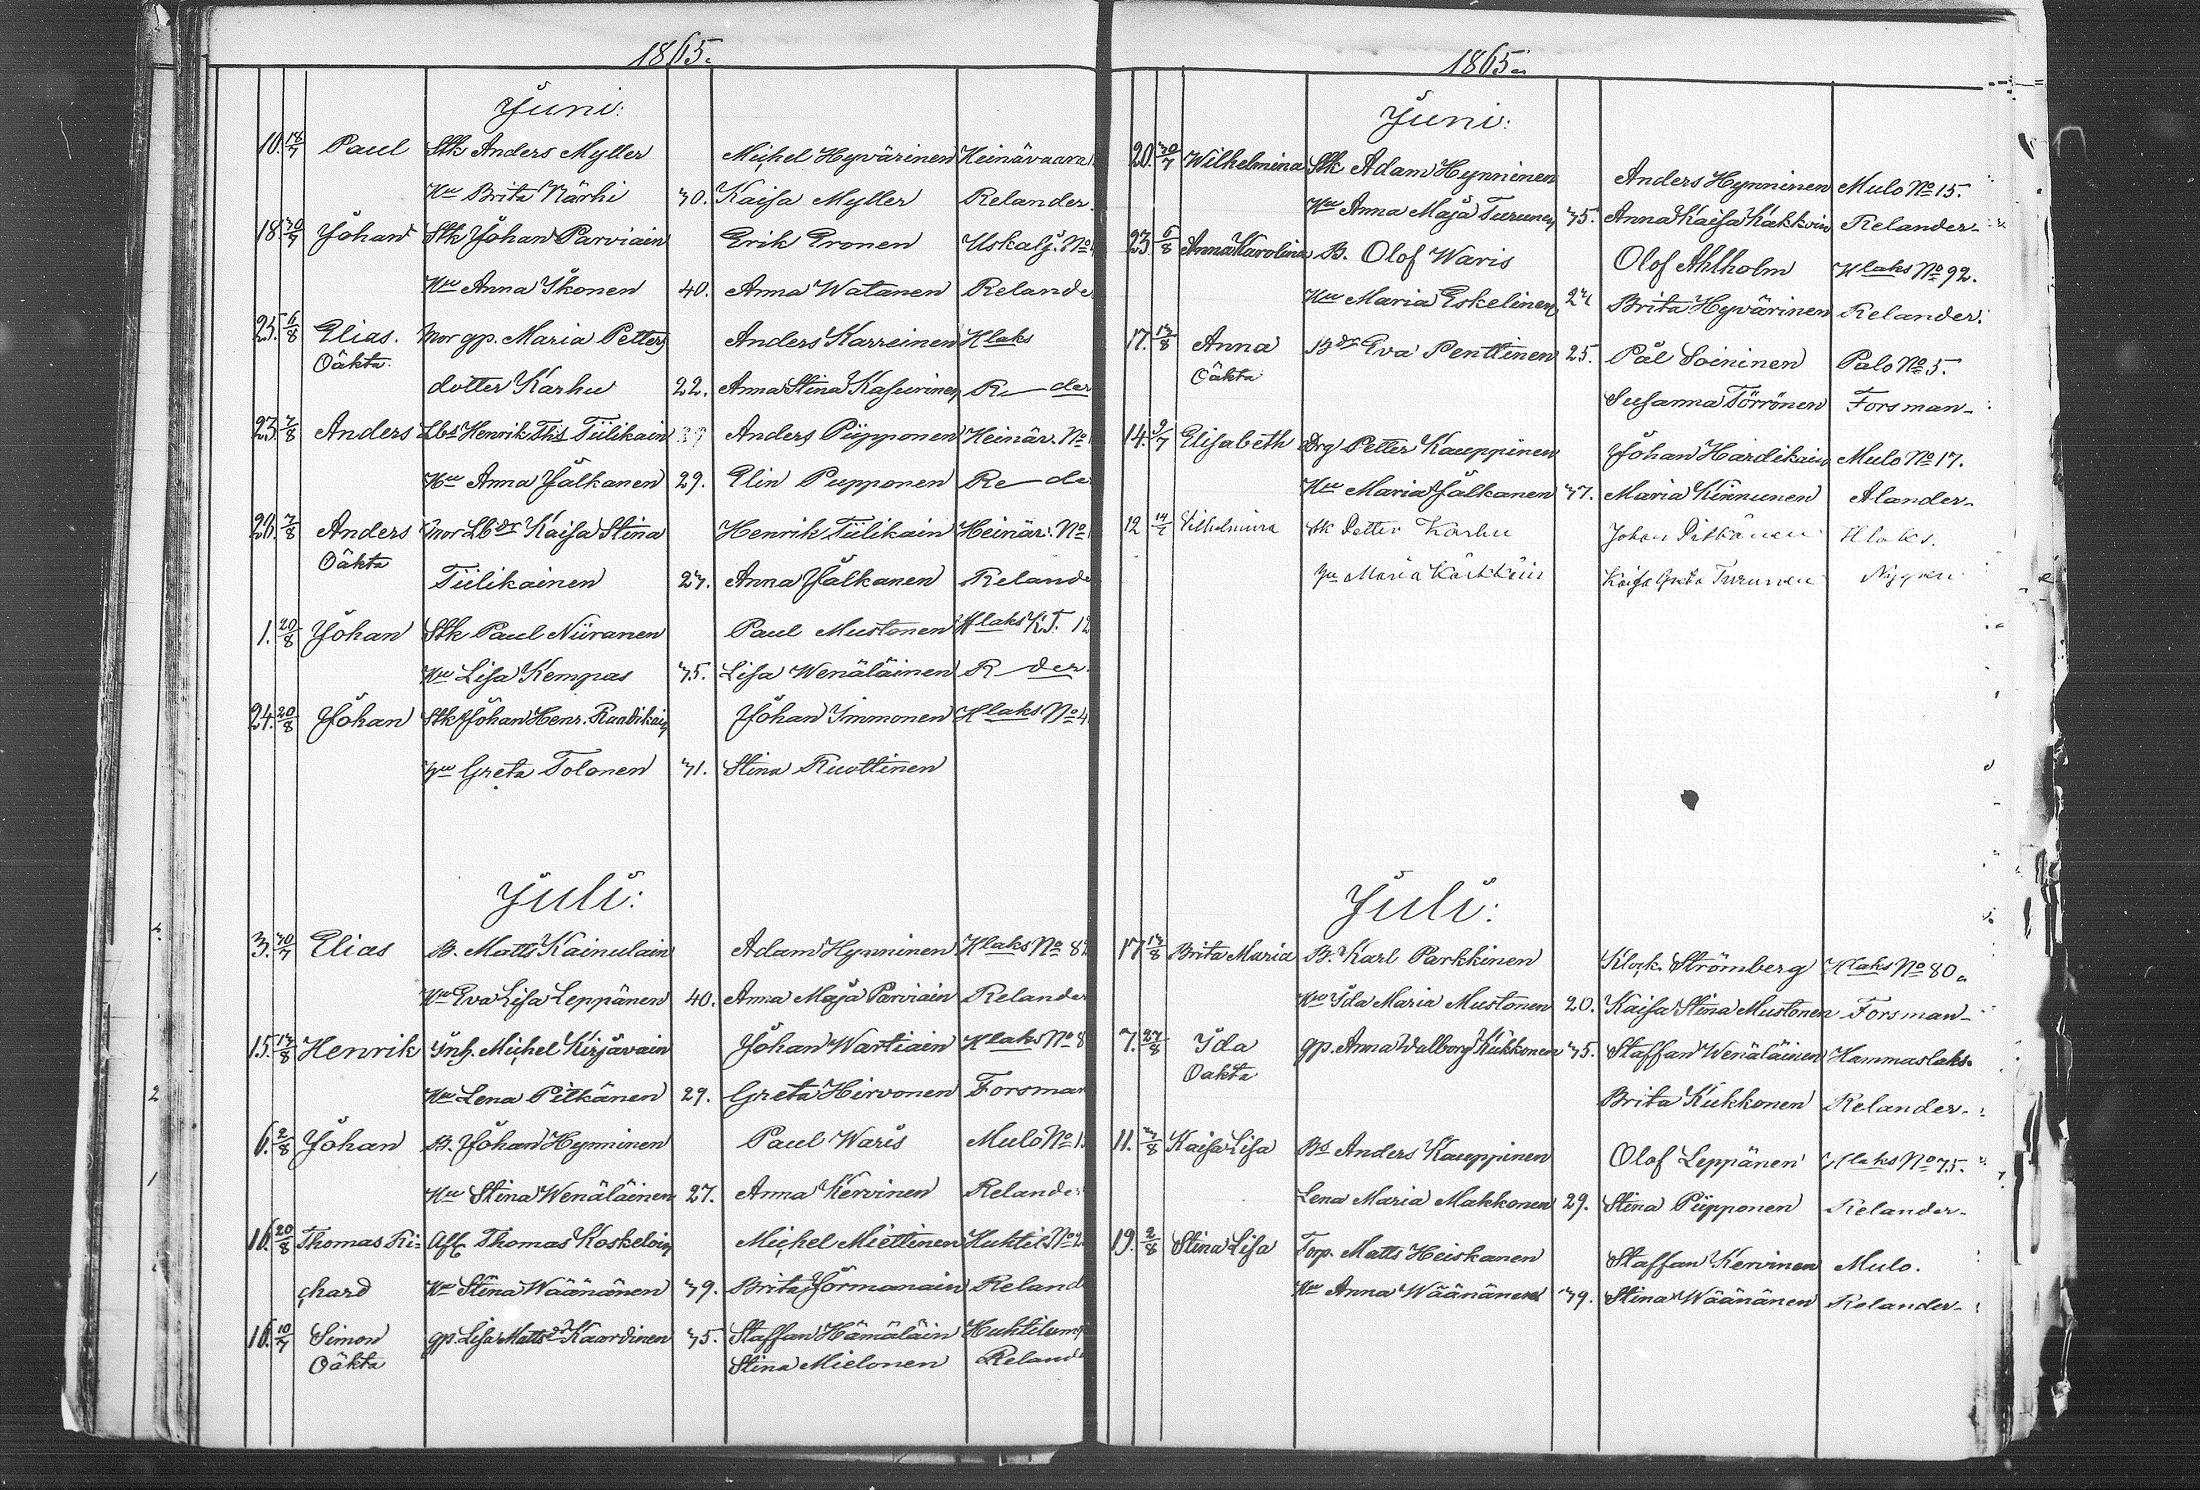 1865.
Juni:
10. 18/7 Paul Stk Anders Myller Michel Hyvärinen Heinävaara
Hu Brita Närhi 30. Kaisa Myller Relander.
18. 30/7 Johan Stk Johan Parviain Erik Eronen Uskalj. No
Hu Anna Ikonen 40. Anna Watanen Relande
25. 6/8 Elias. Mor gp. Maria Petters Anders Karreinen Hlaks
Oäkta. dotter Karhu 22. Anna Stina Kasurinen R—der
23. 7/8 Anders Lbs Henrik Ths Tiilikain Anders Piipponen Heinäv. No
Hu Anna Jalkanen 29. Elin Pupponen Re—de
26. 7/8 Anders Mor Lbdr Kaisa Stina Henrik Tiilikain Heinäv. No
Oäkta Tiilikainen 27. Anna Jalkanen Reland
1. 20/8 Johan Stk Paul Niiranen Paul Mustonen Hlaks K.T. 12
Hu Lisa Kempas 35. Lisa Wenäläinen R—der.
24. 20/8 Johan Stk Johan Henr. Raadikain Johan Immonen Hlaks No 4
Hu Greta Tolonen 31. Stina Ruottinen
Juli:
3. 30/7 Elias B. Matts Kainulain Adam Hynninen Hlaks No 8
Hu Eva Lisa Leppänen 40. Anna Maja Parviain Relander
15. 13/8 Henrik Inh. Michel Kirjavain Johan Wartiain Hlaks No 8
Hu Lena Pitkänen 29. Greta Hirvonen Forsman
6. 2/8 Johan B. Johan Hynninen Paul Waris Mulo No 1
Hu Stina Wenäläinen 27. Anna Kervinen Relande
16. 20/8 Thomas Ri= Afsk. Thomas Koskeloin Michel Miettinen Huhtil. No 2
chard Hu Stina Wäänänen 39. Brita Jormanain Reland
16. 10/7 Simon gp. Lisa Mattsdr Kaardinen 35. Staffan Hämäläin Huhtilamp
Oäkta Stina Mielonen Reland
1865.
Juni:
20. 30/7 Wilhelmina Stk Adam Hynninen Anders Hynninen Mulo No 15.
Hu Anna Maja Turunen 35. Anna Kaisa Kakkoin Relander.
23. 6/8 Anna Karolina B. Olof Waris Olof Ahlholm Hlaks No 92.
Hu Maria Eskelinen 27 Brita Hyvärinen Relander.
17. 13/8 Anna Bdr Eva Penttinen 25. Pål Soininen Palo No 5.
Oäkta Susanna Törrönen Forsman.
14. 9/7 Elisabeth Drg Petter Kauppinen Johan Hardikain Mulo No 17.
Hu Maria Jalkanen 37. Maria Kinnunen Alander.
12 14/7 Vilhelmina Stk Petter Karhu Johan Pitkänen Hlaks.
Hu Maria Karkkäin Kaisa Greta Turunen Nygren
Juli:
17 13/8 Brita Maria B. Karl Parkkinen Klock. Strömberg Hlaks No 80.
Hu Ida Maria Mustonen 20. Kaisa Stina Mustonen Forsman.
7. 27/8 Ida gp. Anna Walborg Kukkonen 35. Staffan Wenäläinen Hammaslaks.
Oakta Brita Kukkonen Relander.
11. /8 Kaisa Lisa Bs Anders Kauppinen Olof Leppänen Hlaks No 75.
Lena Maria Makkonen 29. Stina Piipponen Relander.
19. 2/8 Stina Lisa Torp. Matts Heiskanen Staffan Kervinen Mulo.
Hu Anna Wäänänen 39. Stina Wäänänen Relander.